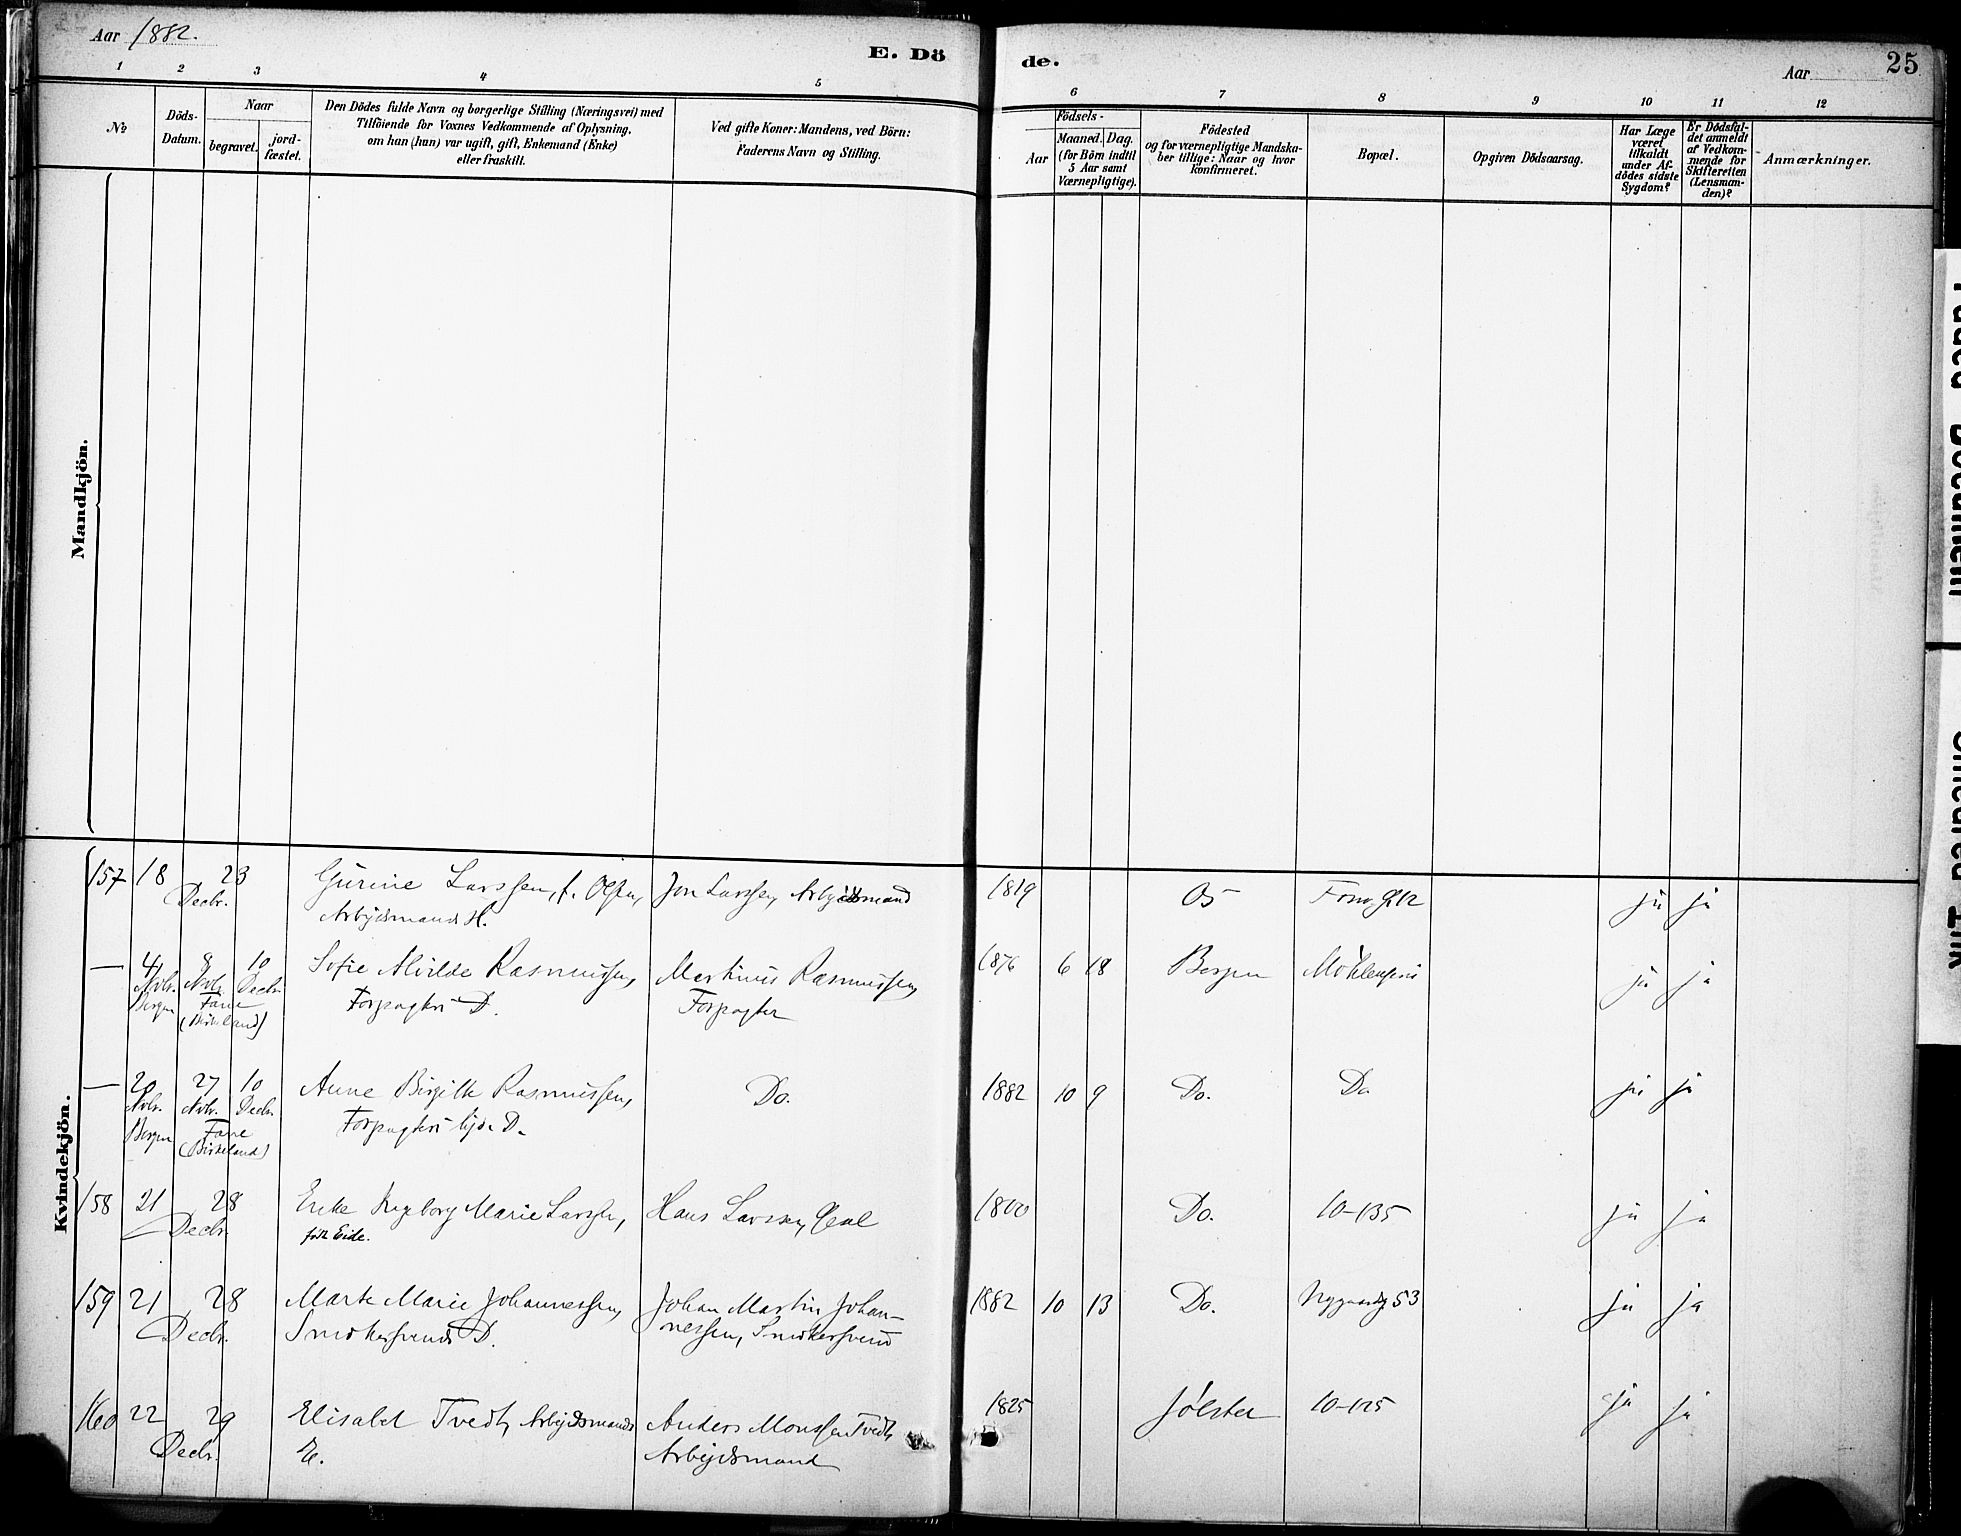 Aar 1882.
E. Dö de.
Aar
25
1 2 3 4 5 6 7 8 9 10 11 12
№
Döds-Datum.
Naar
begravet.
jord-fæstet.
Den Dödes fulde Navn og borgerlige Stilling (Næringsvei) med
Tilföiende for Voxnes Vedkommende af Oplysning,
om han (hun) var ugift, gift, Enkemand (Enke)
eller fraskilt.
Ved gifte Koner: Mandens, ved Börn:
Faderens Navn og Stilling.
Födsels-
Aar
Maaned. Dag.
(for Börn indtil
5 Aar samt
Værnepligtige).
Födested
og for værnepligtige Mandska-
ber tillige: Naar og hvor
konfirmeret.
Bopæl.
Opgiven Dödsaarsag.
Har Læge
været
tilkaldt
under Af-
dödes sidste
Sygdom?
Er Dödsfal-
det anmeldt
af Vedkom-
mende for
Skifteretten
(Lensman-
den)?
Anmærkninger.
Mandkjön.
Kvindekjön.
157 18 23 Gurine Larssen, f. Olsen, Jon Larssen, Arbeidsmand 1819 Os ja ja
Decbr. Arbejdsmands H.
— 4 8 10 Sofie Alvilde Rasmussen, Martinus Rasmussen, 1876 6 18 Bergen Möhlenpris ja ja
Novbr. Novbr. Decbr. Forpagters D. Forpagter
Bergen Fane
(Birkeland)
— 20 27 10 Anne Birgitte Rasmussen, Do. 1882 10 9 Do. Do. ja ja
Novbr. Novbr. Decbr. Forpagters D.
Bergen Fane
(Birkeland)
158 21 28 Enke Ingeborg Marie Larssen, Hans Larssen 1800 Do. 10-135 ja ja
Decbr. född Eide.
159 21 28 Marte Marie Johannessen, Johan Martin Johan- 1882 10 13 Do. Nygaardsg 53 ja ja
Decbr. Snedkersvends D. nessen, Snedkersvend
160 22 29 Elisabet Tvedt, Arbejdsmands Anders Monssen Tvedt, 1825 Jölster ja ja
Decbr. E. Arbejdsmand